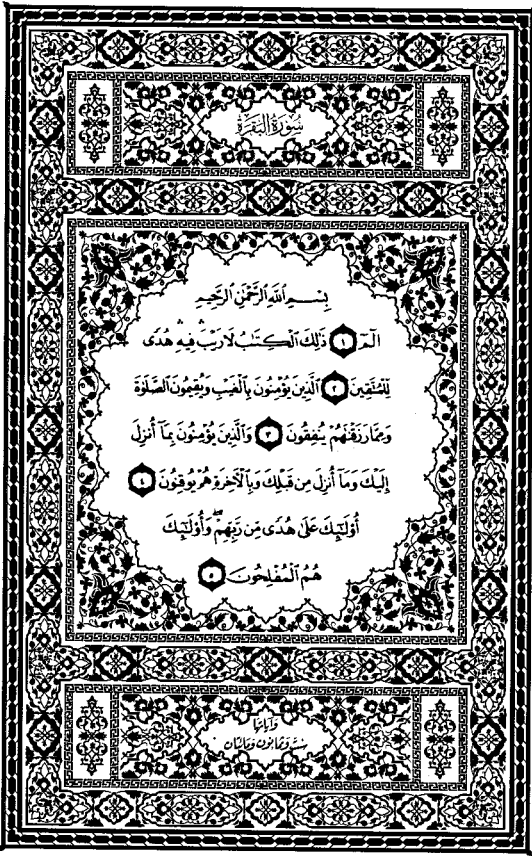 سُورَةُ الْبَقَرَةِ
بِسْمِ اللَّهِ الرَّحْمَٰنِ الرَّحِيمِ
الٓمٓ ١ ذَٰلِكَ الْكِتَابُ لَا رَيْبَ ۛ فِيهِ ۛ هُدًى
لِّلْمُتَّقِينَ ٢ الَّذِينَ يُؤْمِنُونَ بِالْغَيْبِ وَيُقِيمُونَ الصَّلَوٰةَ
وَمِمَّا رَزَقْنَٰهُمْ يُنفِقُونَ ٣ وَالَّذِينَ يُؤْمِنُونَ بِمَآ أُنزِلَ
إِلَيْكَ وَمَآ أُنزِلَ مِن قَبْلِكَ وَبِالْآخِرَةِ هُمْ يُوقِنُونَ ٤
أُو۟لَٰٓئِكَ عَلَىٰ هُدًى مِّن رَّبِّهِمْ ۖ وَأُو۟لَٰٓئِكَ
هُمُ الْمُفْلِحُونَ ٥
وَآيَاتُهَا
سِتٌّ وَثَمَانُونَ وَمِائَتَانِ